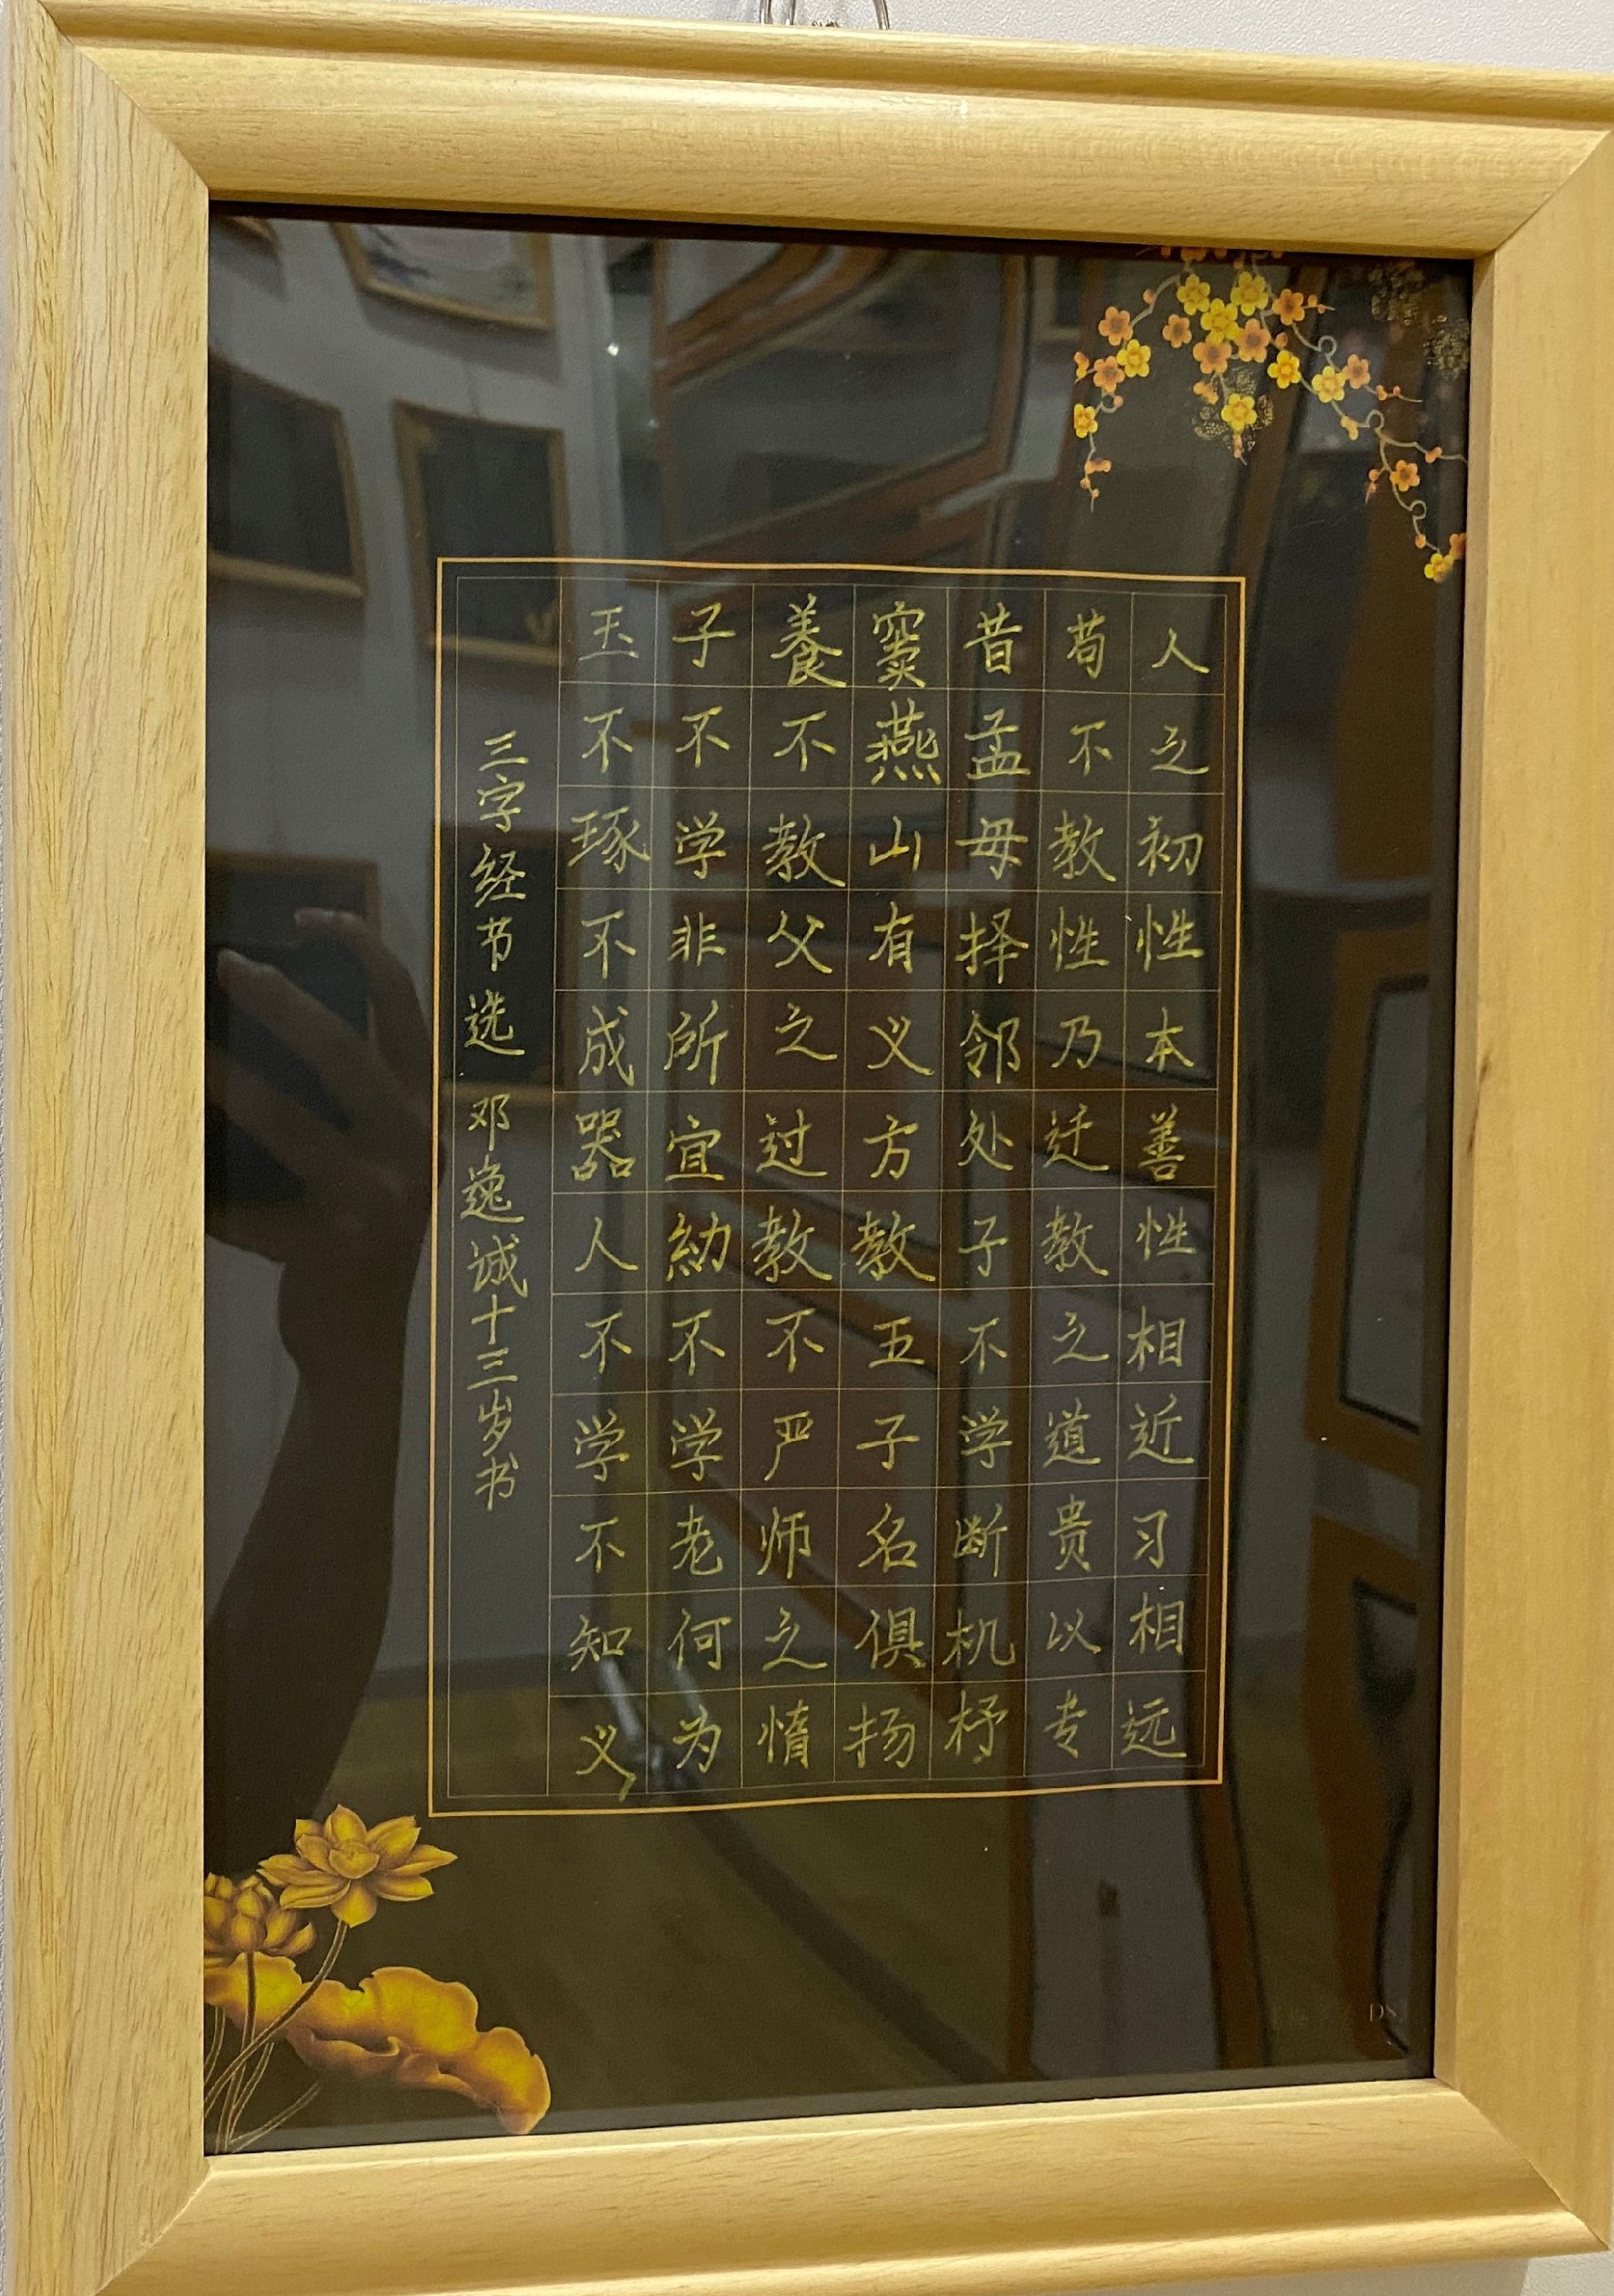 人之初性本善性相近习相远
苟不教性乃迁教之道贵以专
昔孟母择邻处子不学断机杼
窦燕山有义方教五子名俱扬
養不教父之过教不严师之惰
子不学非所宜幼不学老何为
玉不琢不成器人不学不知义
三字经节选 邓逸诚十三岁书